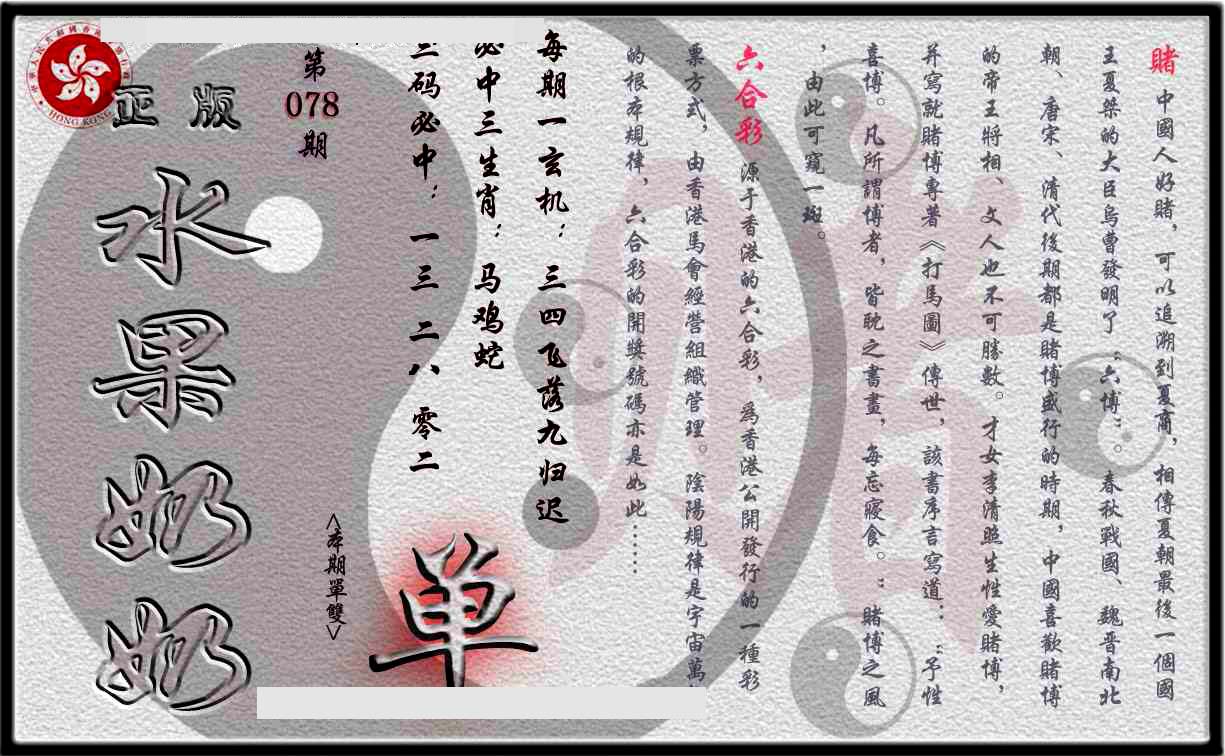 賭 中國人好賭，可以追溯到夏商，相傳夏朝最後一個國
王夏桀的大臣烏曹發明了“六博”。春秋戰國、魏晋南北
朝、唐宋、清代後期都是賭博盛行的時期，中國喜歡賭博
的帝王將相、文人也不可勝數。才女李清照生性愛賭博，
并寫就賭博專著《打馬圖》傳世，該書序言寫道：“予性
喜博。凡所謂博者，皆耽之書畫，每忘寢食。”賭博之風
，由此可窺一斑。
六合彩 源于香港的六合彩，為香港公開發行的一種彩
票方式，由香港馬會經營組織管理。陰陽規律是宇宙萬
的根本規律，六合彩的開獎號碼亦是如此……
每期一玄机：三四飞落九归迟
必中三生肖：马鸡蛇
三码必中：一三 二八 零二
<本期單雙>
单
第
078
期
正版
水果奶奶
HONG KONG